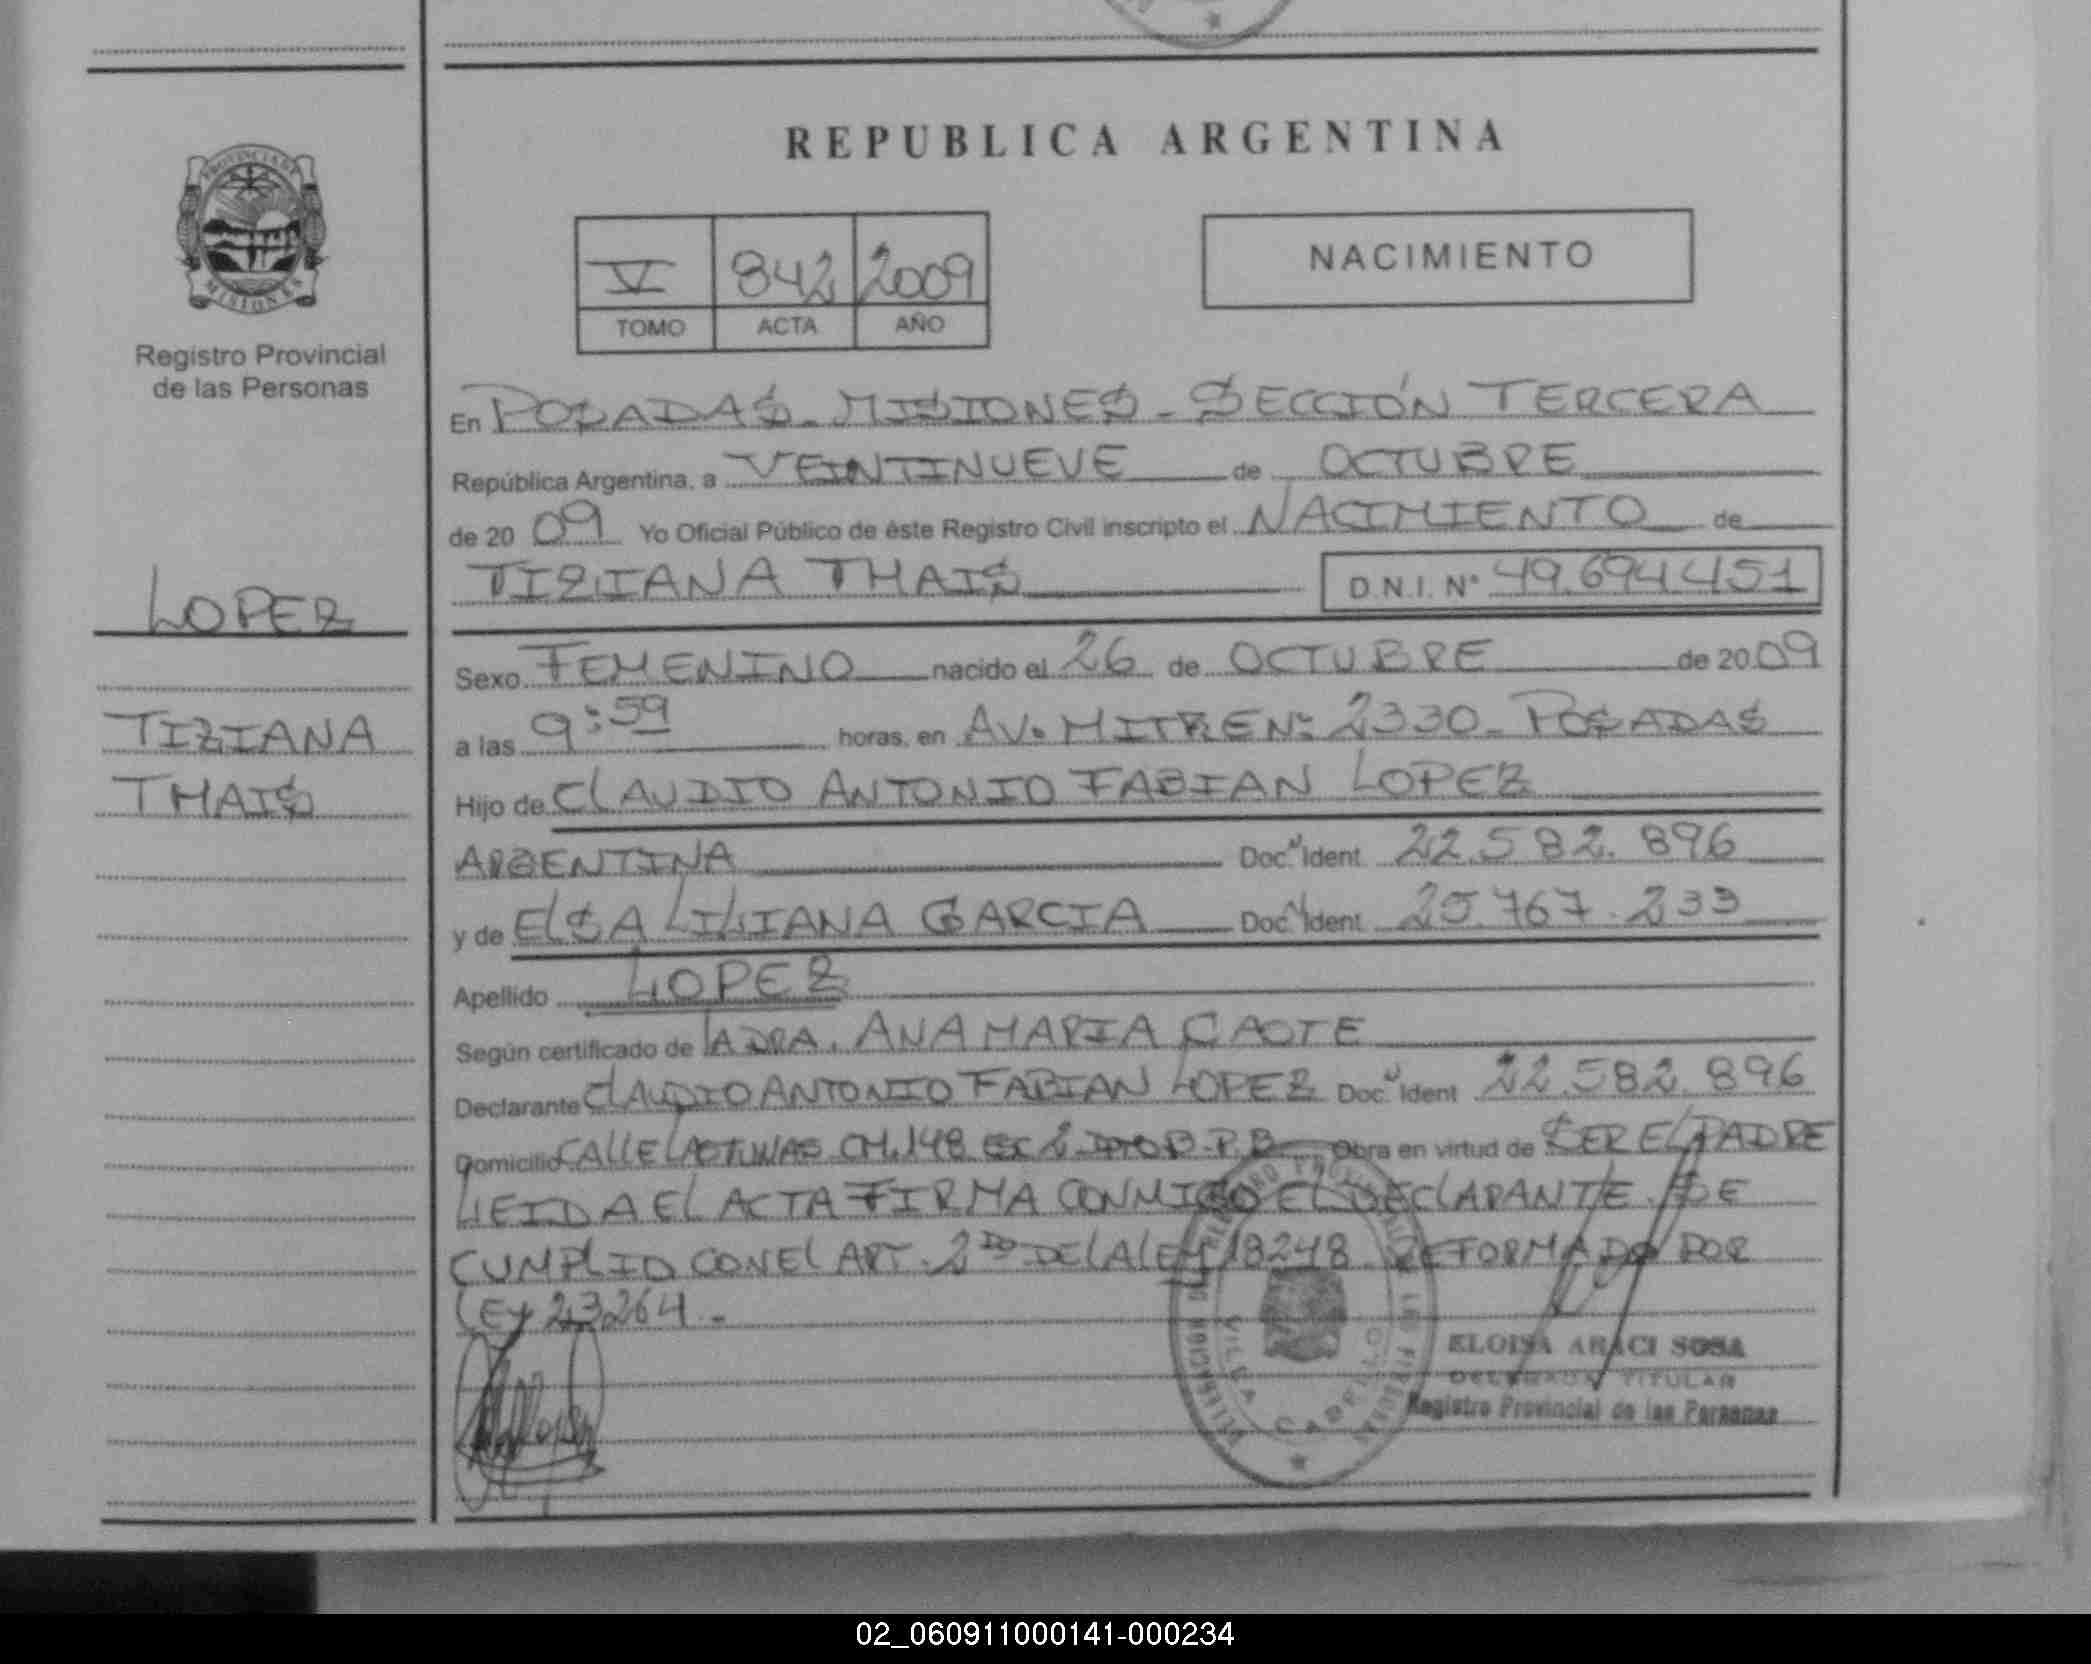 REPUBLICA ARGENTINA
PROVINCIA DE MISIONES
V 842 2009
TOMO ACTA AÑO
NACIMIENTO
Registro Provincial
de las Personas
LOPEZ
TIZIANA
THAIS
En POSADAS - MISIONES - SECCIÓN TERCERA
República Argentina, a VEINTINUEVE de OCTUBRE
de 20 09 Yo Oficial Público de éste Registro Civil inscripto el NACIMIENTO de
TIZIANA THAIS D.N.I. Nº 49.694.451
Sexo FEMENINO nacido el 26 de OCTUBRE de 20 09
a las 9:59 horas, en AV. MITRE Nº 2330 - POSADAS
Hijo de CLAUDIO ANTONIO FABIAN LOPEZ
ARGENTINA Doc. Ident. 22.582.896
y de ELSA LILIANA GARCIA Doc. Ident. 25.767.233
Apellido LOPEZ
Según certificado de LA DRA. ANA MARIA
Declarante CLAUDIO ANTONIO FABIAN LOPEZ Doc. Ident. 22.582.896
Domicilio CALLE CH. 148 2 P.B. Obra en virtud de SER EL PADRE
LEIDA EL ACTA FIRMA CONMIGO EL DECLARANTE. SE
CUMPLIO CON EL ART. 2DO DE LA LEY 18248 REFORMADO POR
LEY 23264.-
VILLA CABELLO
ELOISA ARACI SOSA
DELEGADA TITULAR
Registro Provincial de las Personas
02_060911000141-000234